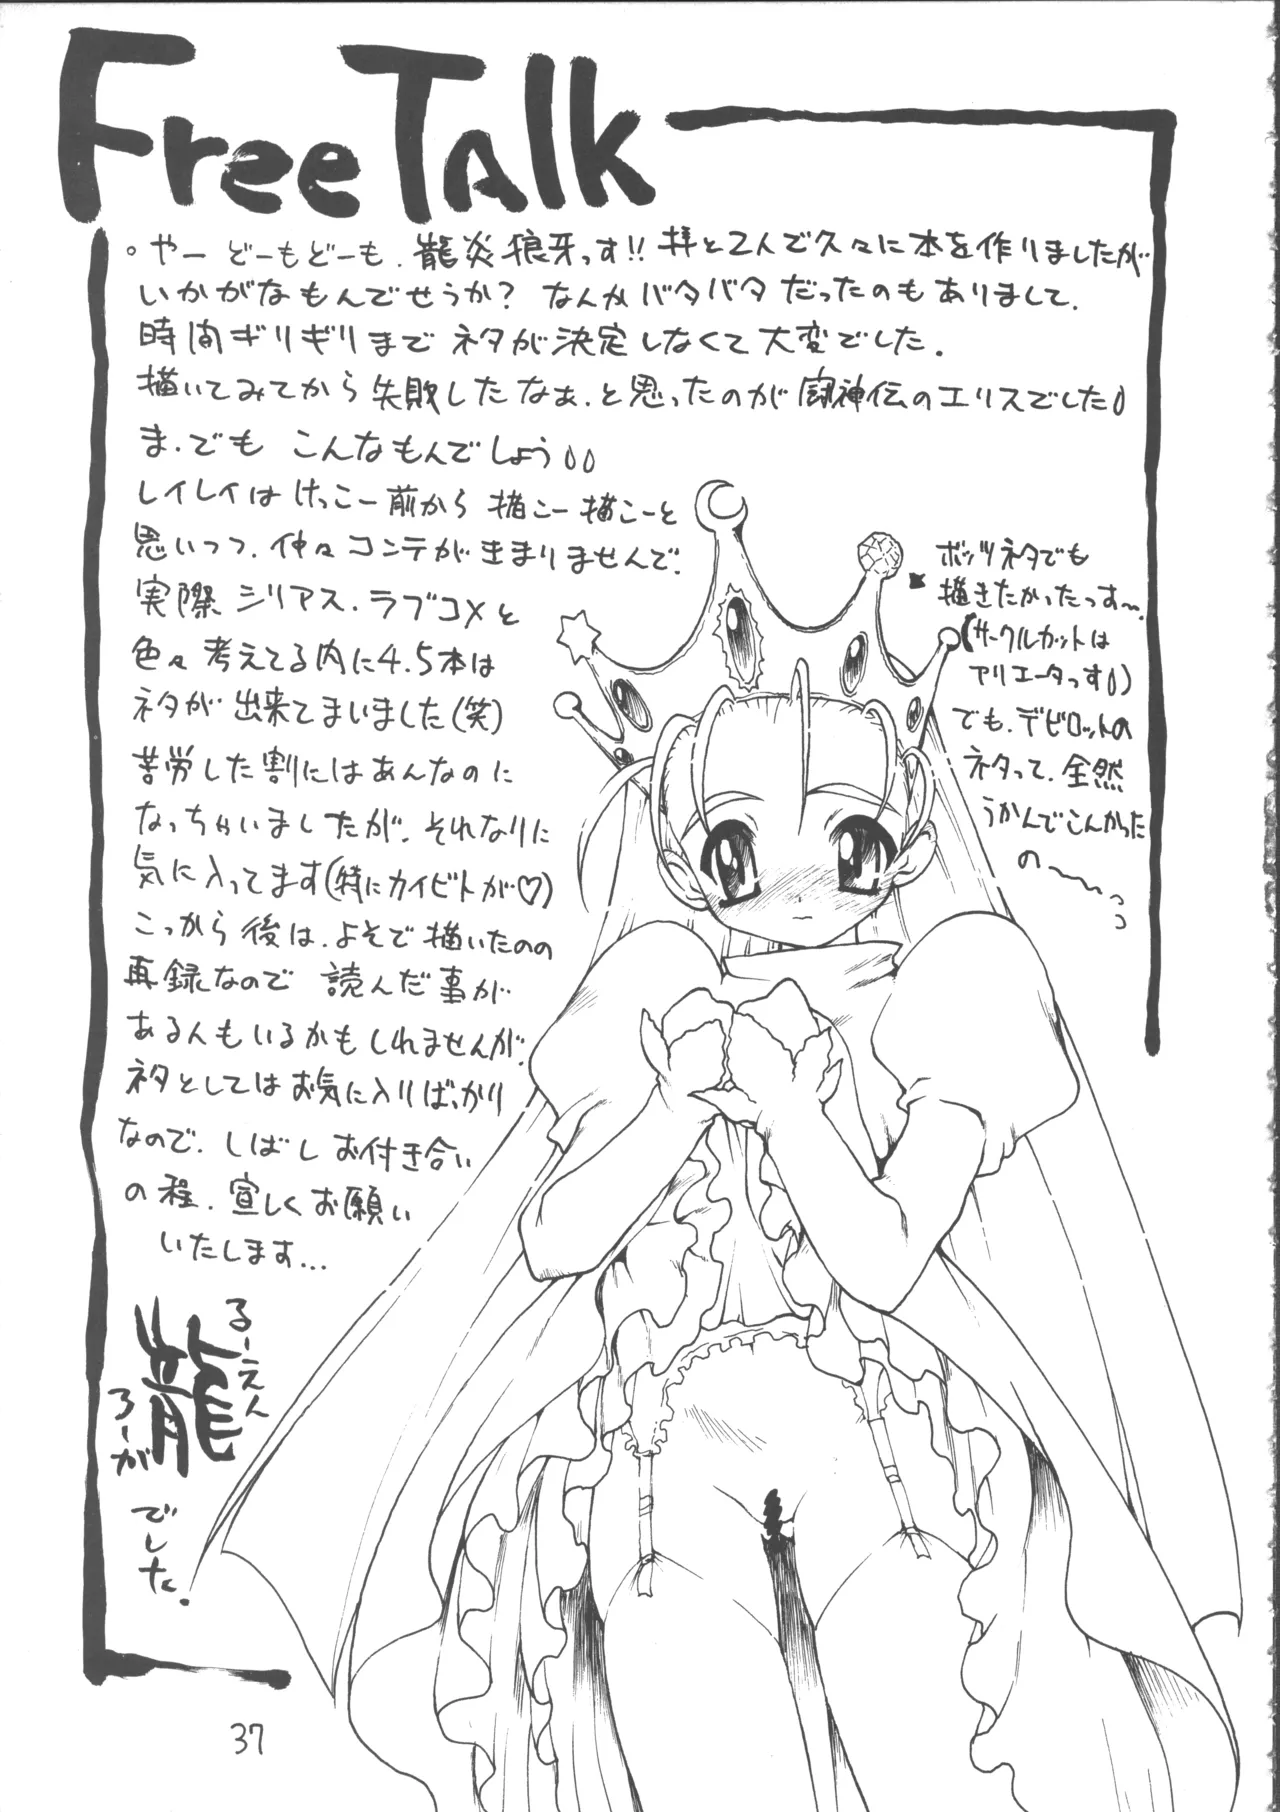 Free Talk
。やー どーもどーも、龍炎狼牙っす!! 拝と2人で久々に本を作りましたが
いかがなもんでせうか? なんかバタバタだったのもありまして、
時間ギリギリまでネタが決定しなくて大変でした。
描いてみてから失敗したなぁ、と思ったのが闘神伝のエリスでした
ま、でも こんなもんでしょう
レイレイはけっこー前から描こー描こーと
思いつつ、仲々コンテがきまりませんで、
実際シリアス、ラブコメと
色々考えてる内に4、5本は
ネタが出来てまいました(笑)
苦労した割にはあんなのに
なっちゃいましたが、それなりに
気に入ってます(特にカイビトが♡)
こっから後は、よそで描いたのの
再録なので 読んだ事が
あるんもいるかもしれませんが、
ネタとしてはお気に入りばっかり
なので、しばしお付き合い
の程、宜しくお願い
いたします...
るーえん
龍
ろーが
でした。
ボッツネタでも
描きたかったっす〜、
(サークルカットは
アリエータっす)
でも、デビロットの
ネタって、全然
うかんでこんかった
の〜っっ
37